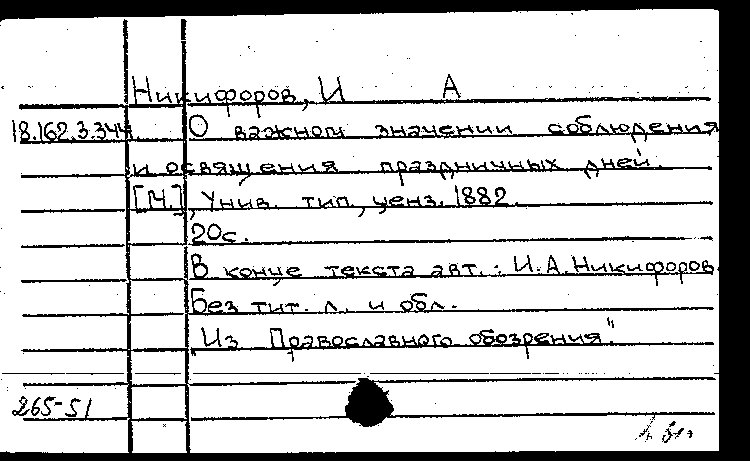 Никифоров, И А
18.162.3.344. О важном значении соблюдения
и освящения праздничных дней.
[М.], Унив. тип., ценз. 1882.
20с.
В конце текста авт.: И.А.Никифоров.
Без тит. л. и обл.
"Из Православного обозрения".
265-51